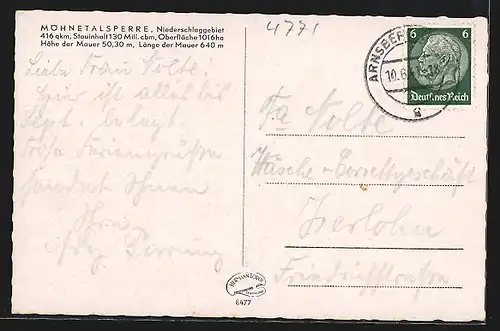 MÖHNETALSPERRE, Niederschlaggebiet
416 qkm, Stauinhalt 130 Mill. cbm, Oberfläche 1016 ha
Höhe der Mauer 50,30 m, Länge der Mauer 640 m
4771
6 6
Deutsches Reich
ARNSBERG
10.6.
g
Liebe Frau Nolte.
hier ist alles bis
Sept. belegt
Frohe Feriengrüße
sendet Ihnen
Ihre
Fa Nolte
Wäsche - Korsettgeschäft
Iserlohn
Friedrichstrasse
6477